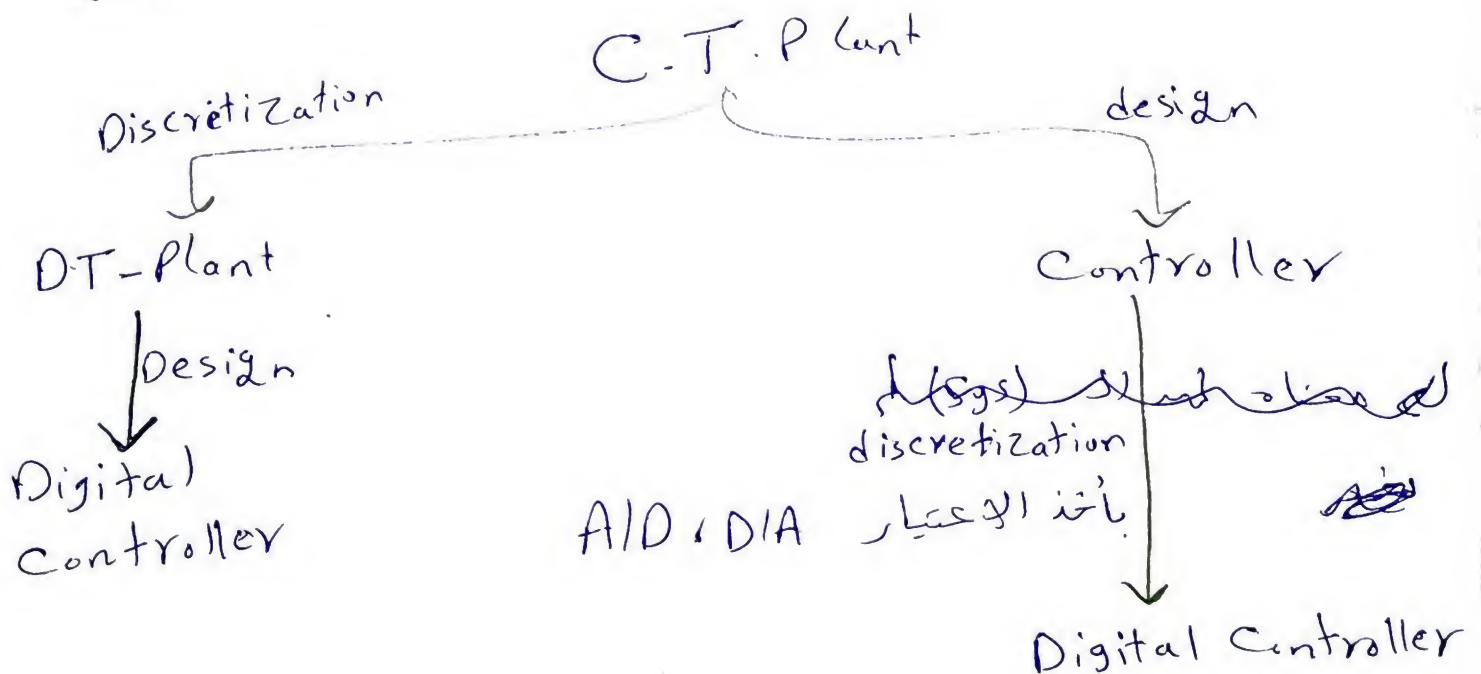 C.T. Plant
Discretization
design
DT-Plant
Controller
Design
discretization
بأخذ الاعتبار A/D، D/A
Digital
Controller
Digital Controller